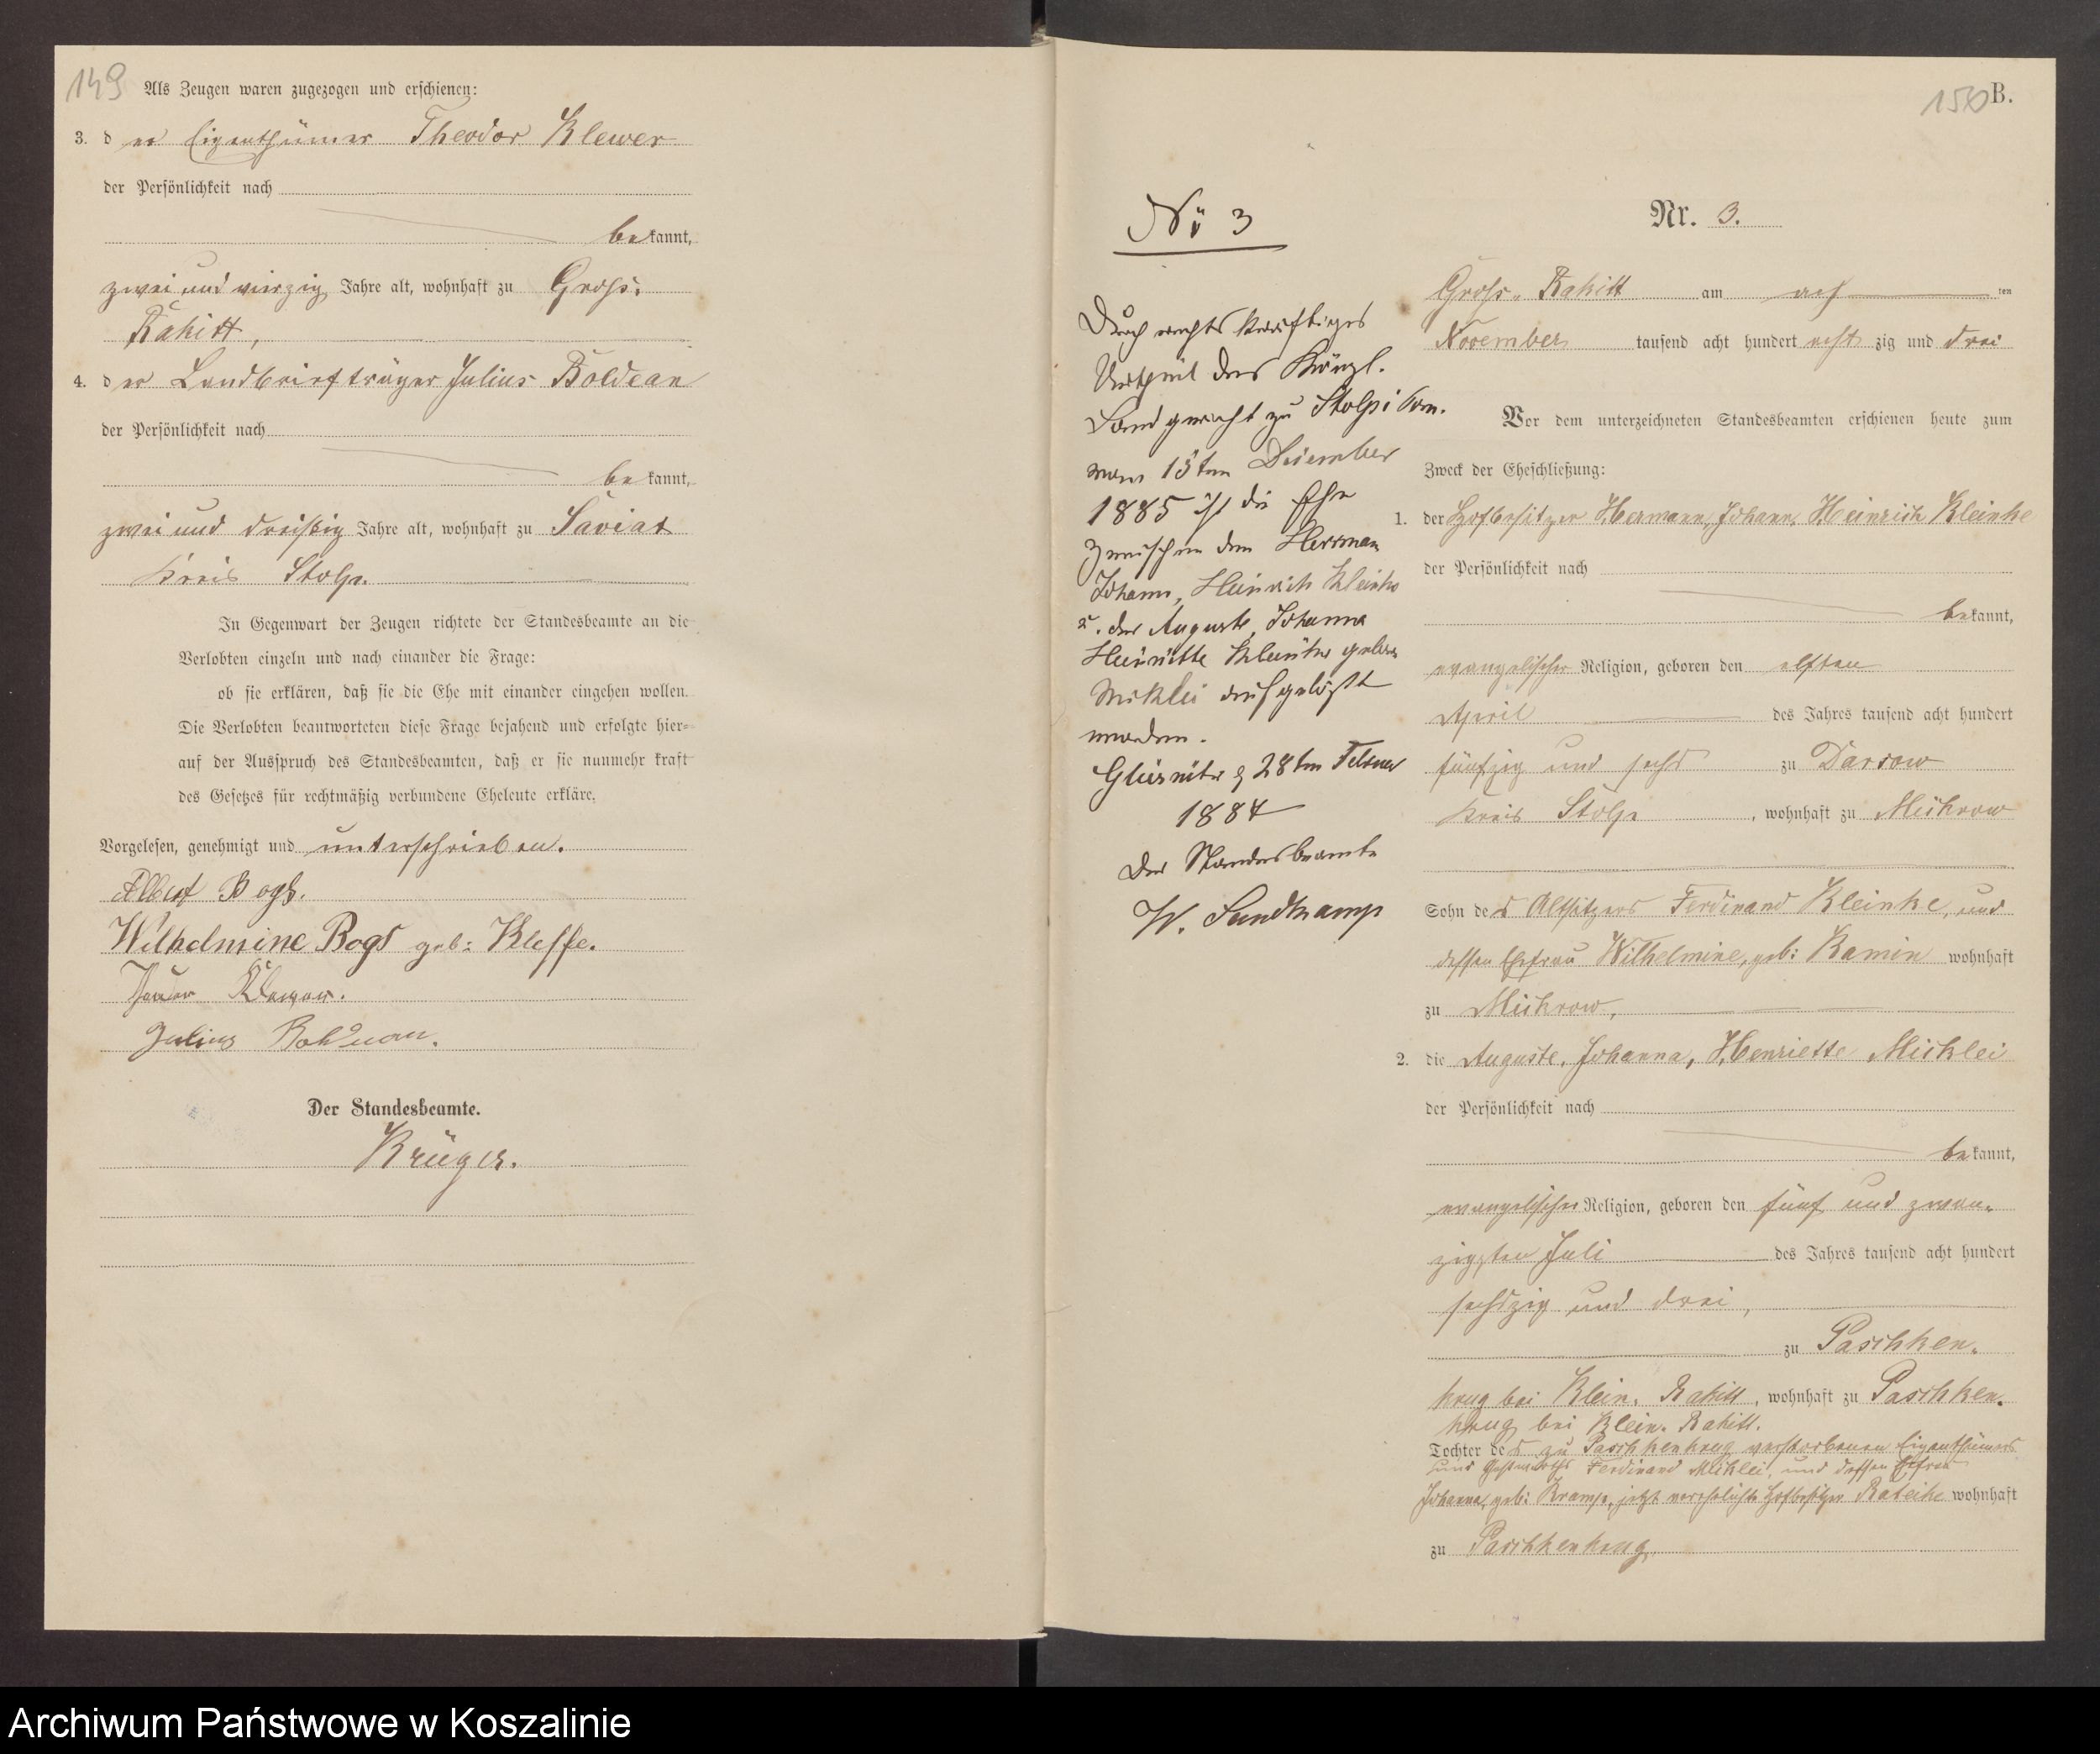 149
Als Zeugen waren zugezogen und erschienen:
3. der Eigenthümer Theodor Klewer
der Persönlichkeit nach
bekannt,
zwei und vierzig Jahre alt, wohnhaft zu Groß-
Rakitt,
4. der Landbriefträger Julius Boldean
der Persönlichkeit nach
bekannt,
zwei und dreißig Jahre alt, wohnhaft zu Saviat
Kreis Stolp.
In Gegenwart der Zeugen richtete der Standesbeamte an die
Verlobten einzeln und nach einander die Frage:
ob sie erklären, daß sie die Ehe mit einander eingehen wollen.
Die Verlobten beantworteten diese Frage bejahend und erfolgte hier-
auf der Ausspruch des Standesbeamten, daß er sie nunmehr kraft
des Gesetzes für rechtmäßig verbundene Eheleute erkläre.
Vorgelesen, genehmigt und unterschrieben.
Albert Bogs.
Wilhelmine Bogs geb: Kleffe.
Klewer.
Julius Bolduan.
Der Standesbeamte.
Krüger.
150
B.
No 3
Durch rechtskräftiges
Urtheil des Königl.
Landgericht zu Stolp i Pom.
vom 15ten Dezember
1885 ist die Ehe
zwischen dem Herrman
Johann, Heinrich Kleinke
u. der Auguste, Johanna
Heinriette Kleinke geboren
Miklei aufgelößt
worden.
Gliesnitz d 28ten Februar
1884
Der Standesbeamte
W. Sandkamp
Nr. 3.
Groß-Rakitt am ach ten
November tausend acht hundert acht zig und drei
Vor dem unterzeichneten Standesbeamten erschienen heute zum
Zweck der Eheschließung:
1. der Hofbesitzer Hermann, Johann, Heinrich Kleinke
der Persönlichkeit nach
bekannt,
evangelischer Religion, geboren den elften
April des Jahres tausend acht hundert
fünfzig und sechs zu Darsow
Kreis Stolp, wohnhaft zu Mickrow
Sohn des Altsitzers Ferdinand Kleinke, und
dessen Ehefrau Wilhelmine, geb: Kamin wohnhaft
zu Mickrow,
2. die Auguste, Johanna, Henriette Micklei
der Persönlichkeit nach
bekannt,
evangelischer Religion, geboren den fünf und zwan-
zigsten Juli des Jahres tausend acht hundert
sechszig und drei,
zu Paschken-
krug bei Klein-Rakitt, wohnhaft zu Paschken-
krug bei Klein-Rakitt.
Tochter des zu Paschkenkrug verstorbenen Eigenthümers
und Gastwirths Ferdinand Micklei, und dessen Ehefrau
Johanna, geb: Kramp, jetzt verehelichte Hofbesitzer Rateike wohnhaft
zu Paschkenkrug
Archiwum Państwowe w Koszalinie